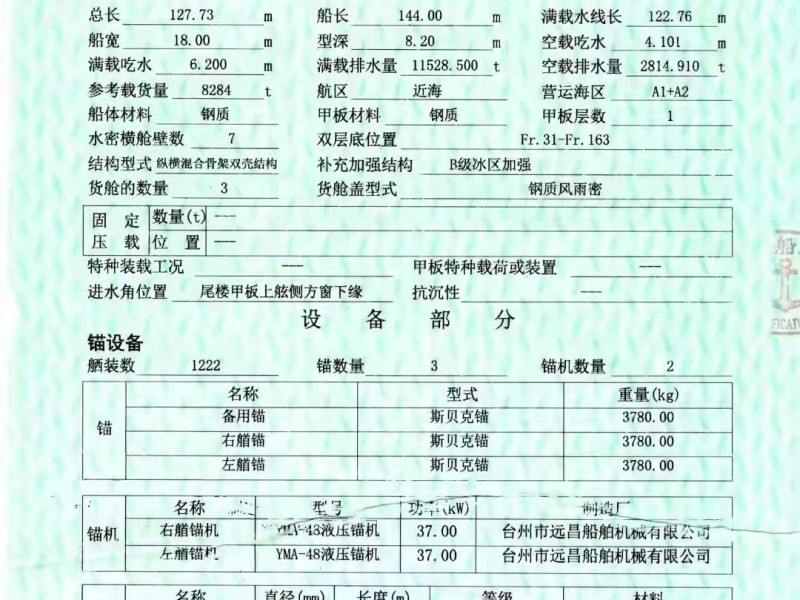 总长 127.73 m 船长 144.00 m 满载水线长 122.76 m
船宽 18.00 m 型深 8.20 m 空载吃水 4.101 m
满载吃水 6.200 m 满载排水量 11528.500 t 空载排水量 2814.910 t
参考载货量 8284 t 航区 近海 营运海区 A1+A2
船体材料 钢质 甲板材料 钢质 甲板层数 1
水密横舱壁数 7 双层底位置 Fr.31-Fr.163
结构型式 纵横混合骨架双壳结构 补充加强结构 B级冰区加强
货舱的数量 3 货舱盖型式 钢质风雨密
固定压载 数量(t) ---
位置 ---
特种装载工况 --- 甲板特种载荷或装置 ---
进水角位置 尾楼甲板上舷侧方窗下缘 抗沉性 ---
设备部分
锚设备
舾装数 1222 锚数量 3 锚机数量 2
锚 名称 型式 重量(kg)
备用锚 斯贝克锚 3780.00
右艏锚 斯贝克锚 3780.00
左艏锚 斯贝克锚 3780.00
锚机 名称 型号 功率(kW) 制造厂
右艏锚机 YMA-48液压锚机 37.00 台州市远昌船舶机械有限公司
左艏锚机 YMA-48液压锚机 37.00 台州市远昌船舶机械有限公司
名称 直径(mm) 长度(m) 等级 材料
船
FICAT